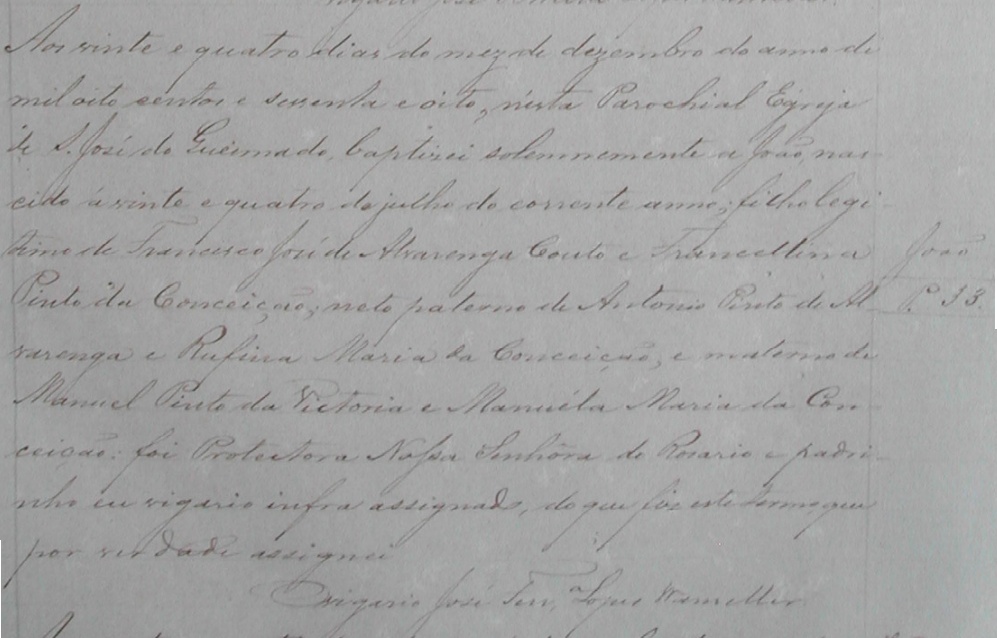 Aos vinte e quatro dias do mez de dezembro do anno de
mil oito centos e sessenta e oito, nésta Parochial Egreja
de S. José do Queimado, baptizei solemnemente a João, nas-
cido á vinte e quatro de julho do corrente anno; filho legi-
timo de Francisco José de Alvarenga Couto e Francellina
João
Pinto da Conceição; neto paterno de Antonio Pinto de Al-
P. 33.
varenga e Rufina Maria da Conceição, e materno de
Manuel Pinto da Victoria e Manuéla Maria da Con-
ceição: foi Protectora Nossa Senhora do Rosario e padri-
nho eu vigario infra assignado, do que fiz este termo que
por verdade assignei
O vigario José